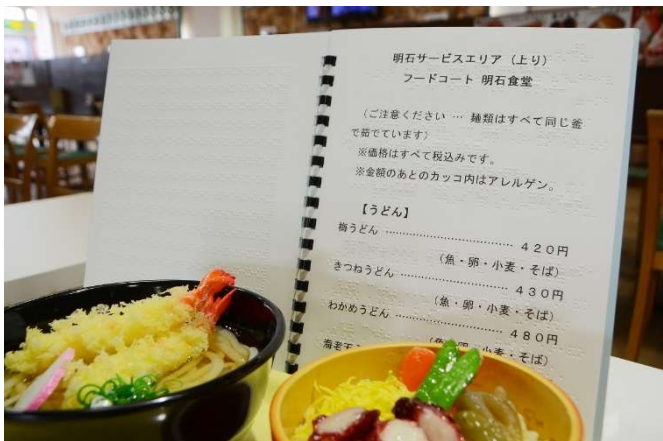 明石サービスエリア（上り）
フードコート 明石食堂
（ご注意ください … 麺類はすべて同じ釜
で茹でています）
※価格はすべて税込みです。
※金額のあとのカッコ内はアレルゲン。
【うどん】
梅うどん ……………………………… ４２０円
（魚・卵・小麦・そば）
きつねうどん ………………………… ４３０円
（魚・卵・小麦・そば）
わかめうどん ………………………… ４８０円
（魚・卵・小麦・そば）
海老天